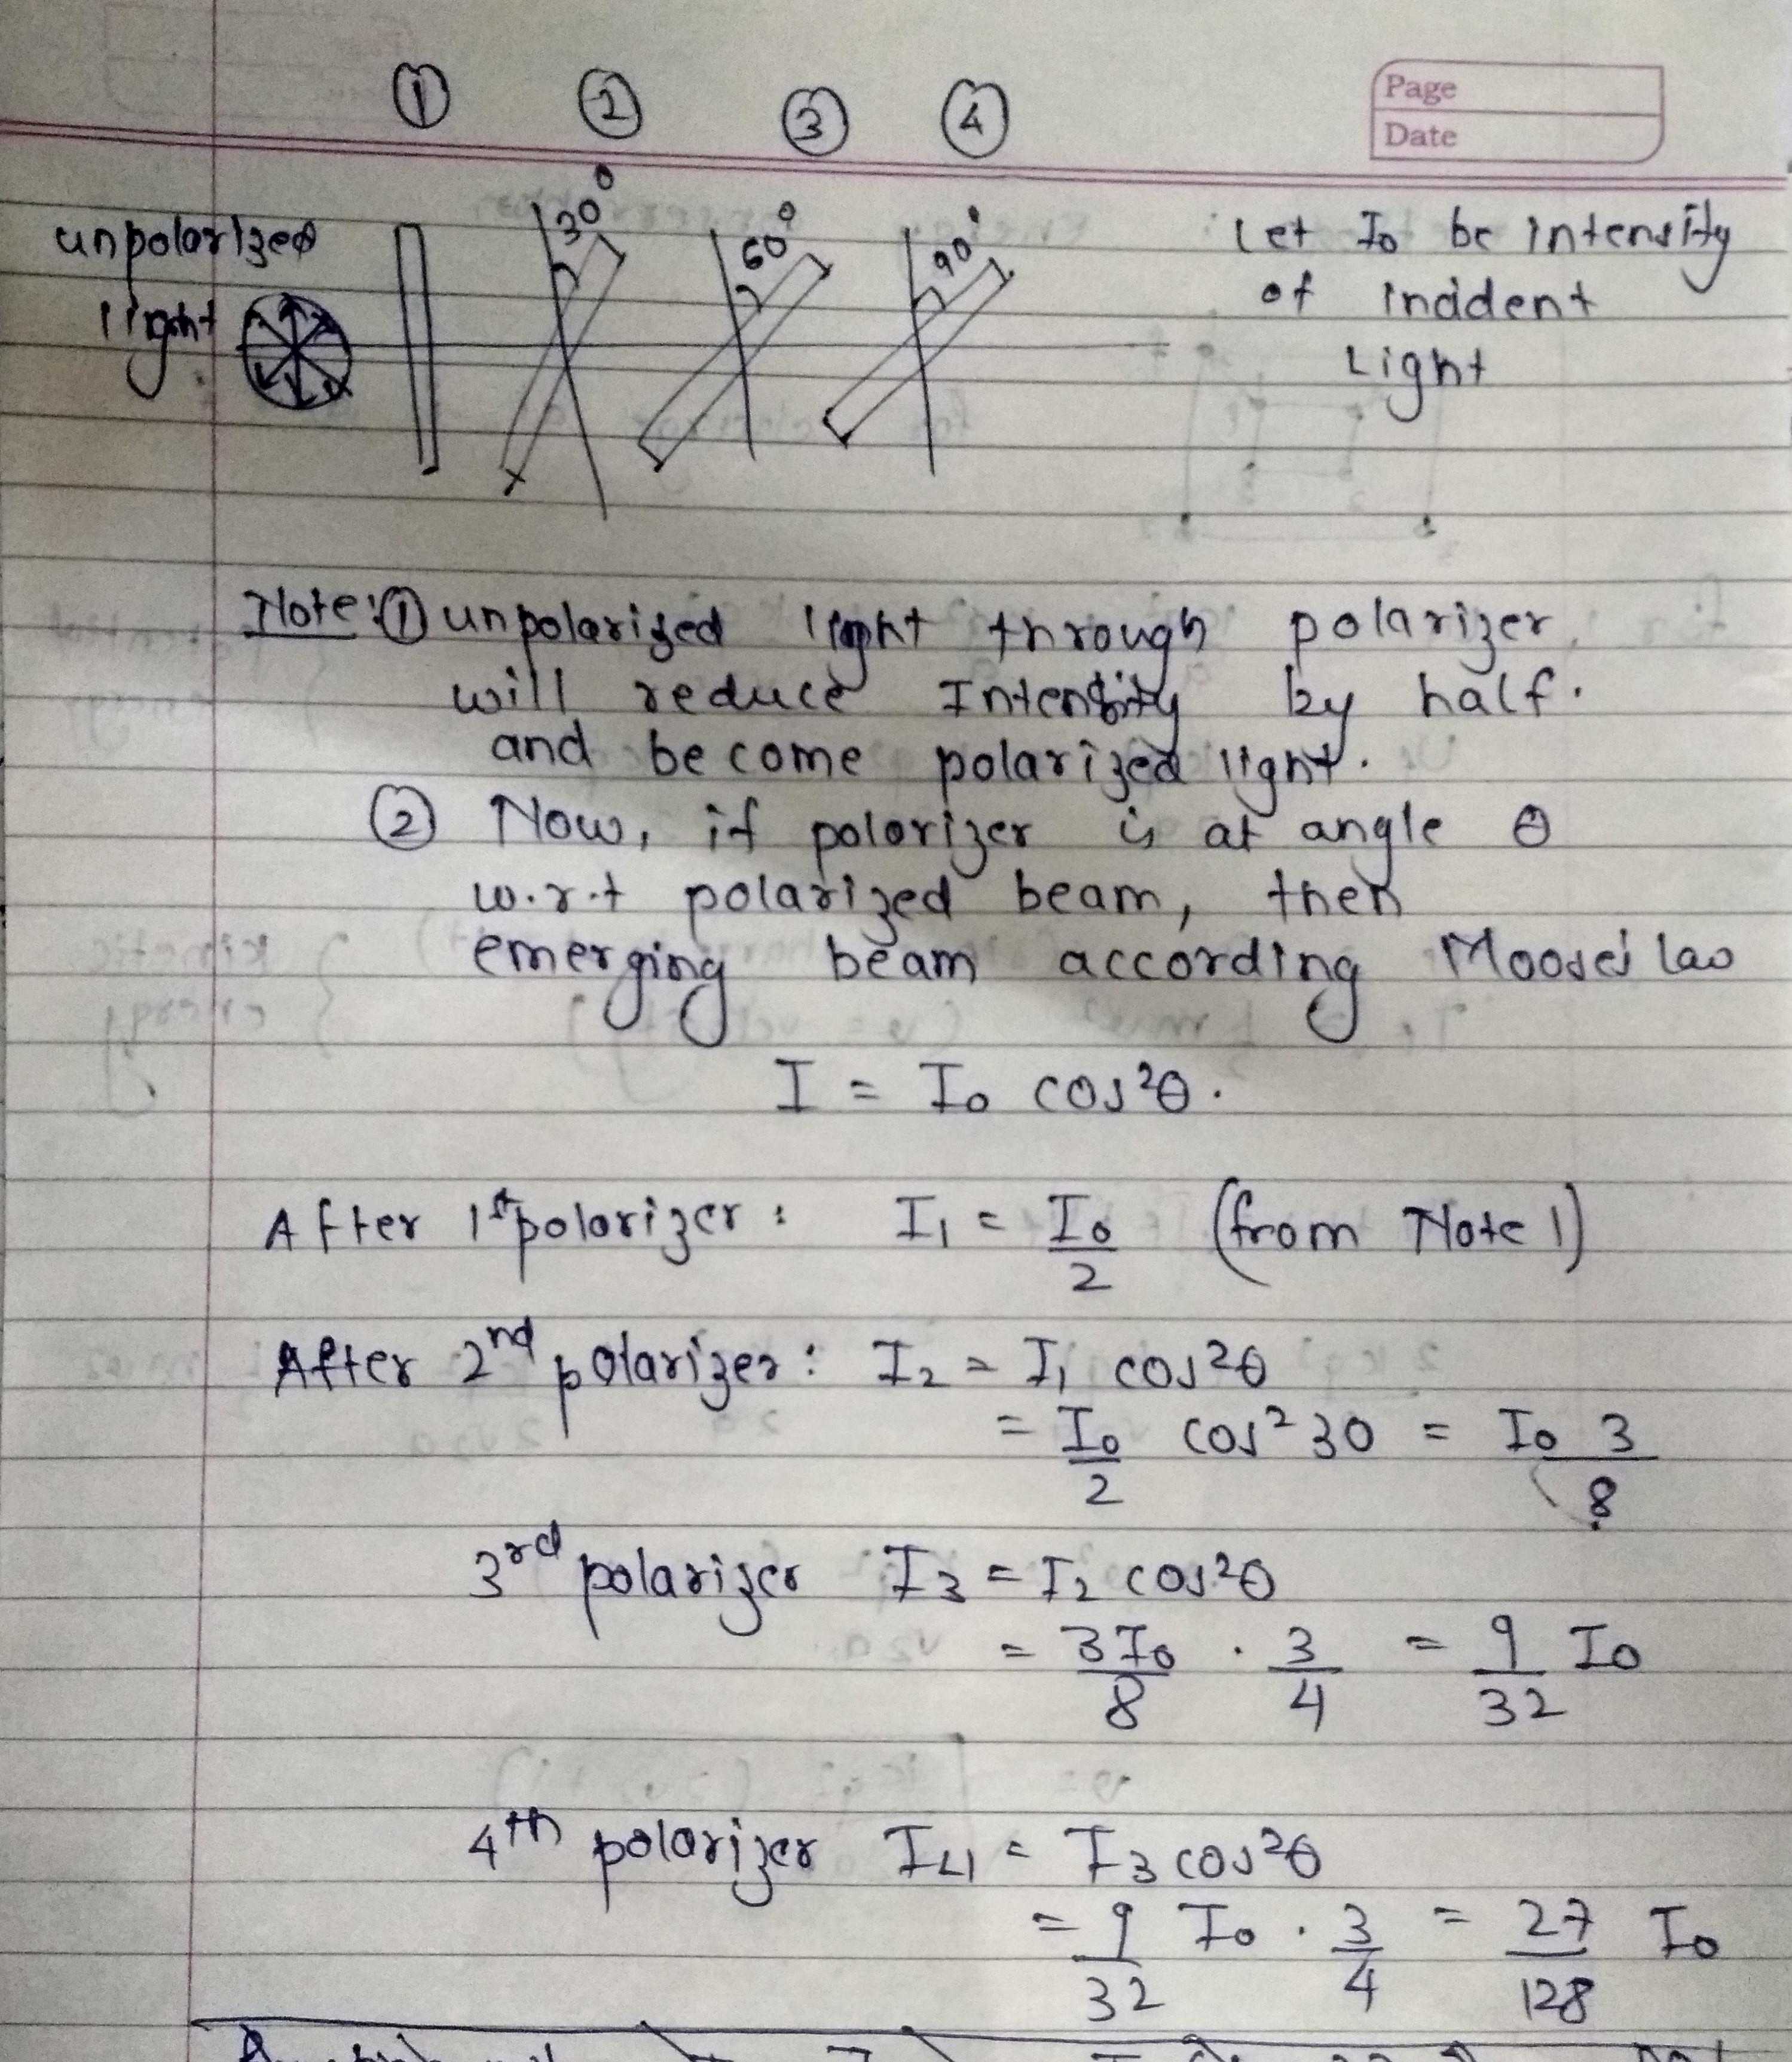 ① ② ③ ④
Page
Date
unpolarized
light
30°
60°
90°
Let I₀ be intensity
of incident
Light
Note: ① unpolarized light through polarizer
will reduce Intensity by half.
and become polarized light.
② Now, if polorizer is at angle θ
w.r.t polarized beam, then
emerging beam according law
I = I₀ cos²θ.
After 1st polorizer : I₁ = I₀/2 (from Note 1)
After 2nd polarizer : I₂ = I₁ cos²θ
= I₀/2 cos²30 = I₀ 3/8
3rd polarizer I₃ = I₂ cos²θ
= 3I₀/8 · 3/4 = 9/32 I₀
4th polarizer I₄ = I₃ cos²θ
= 9/32 I₀ · 3/4 = 27/128 I₀